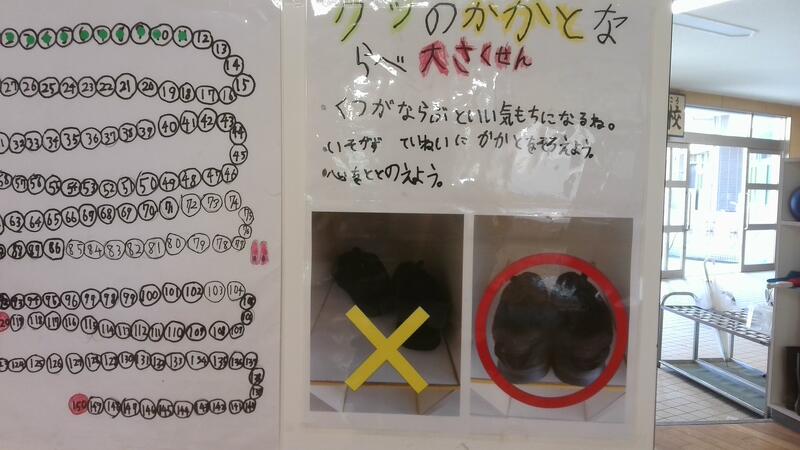 クツのかかとな
らべ 大さくせん
・くつがならぶといい気もちになるね。
・いそがず ていねいに かかとをそろえよう。
・心をととのえよう。
12
13
14
15
27 26 25 24 23 22 21 20 19 18 17 16
32 33 34 35 36 37 38 39 40 41 42 43
44
45
57 56 55 54 53 52 51 50 49 48 47 46
63 64 65 66 67 68 69 70 71 72 73 74
86 85 84 83 82 81 80 79 78 77
!!
95 96 98 99 100 101 102 103 104
119 118 117 116 115 114 113 112 111 110 109 108 107
125 126 127 128 129 130 131 132 133 134 135 136 137
150
147 146 145 144 143 142 141 140
校